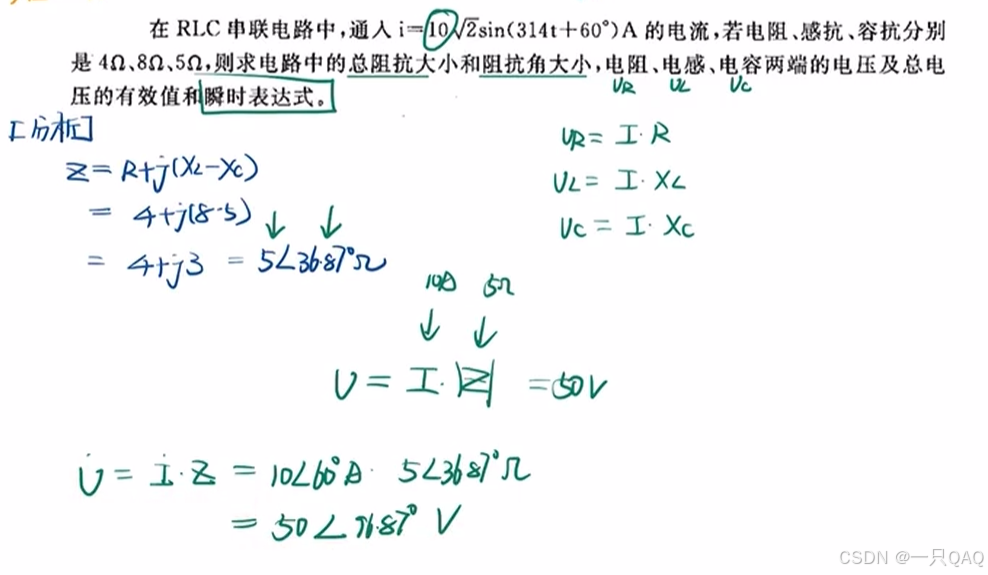 在 RLC 串联电路中,通入 i=10√2sin(314t+60°)A 的电流,若电阻、感抗、容抗分别
是 4Ω、8Ω、5Ω,则求电路中的总阻抗大小和阻抗角大小,电阻、电感、电容两端的电压及总电
压的有效值和瞬时表达式。
UR UL UC
[分析]
Z = R+j(XL-XC)
= 4+j(8-5)
= 4+j3 = 5∠36.87°Ω
UR = I·R
UL = I·XL
UC = I·XC
10A 5Ω
U = I·|Z| = 50V
U̇ = İ·Z = 10∠60°A · 5∠36.87°Ω
= 50∠96.87° V
CSDN @一只QAQ